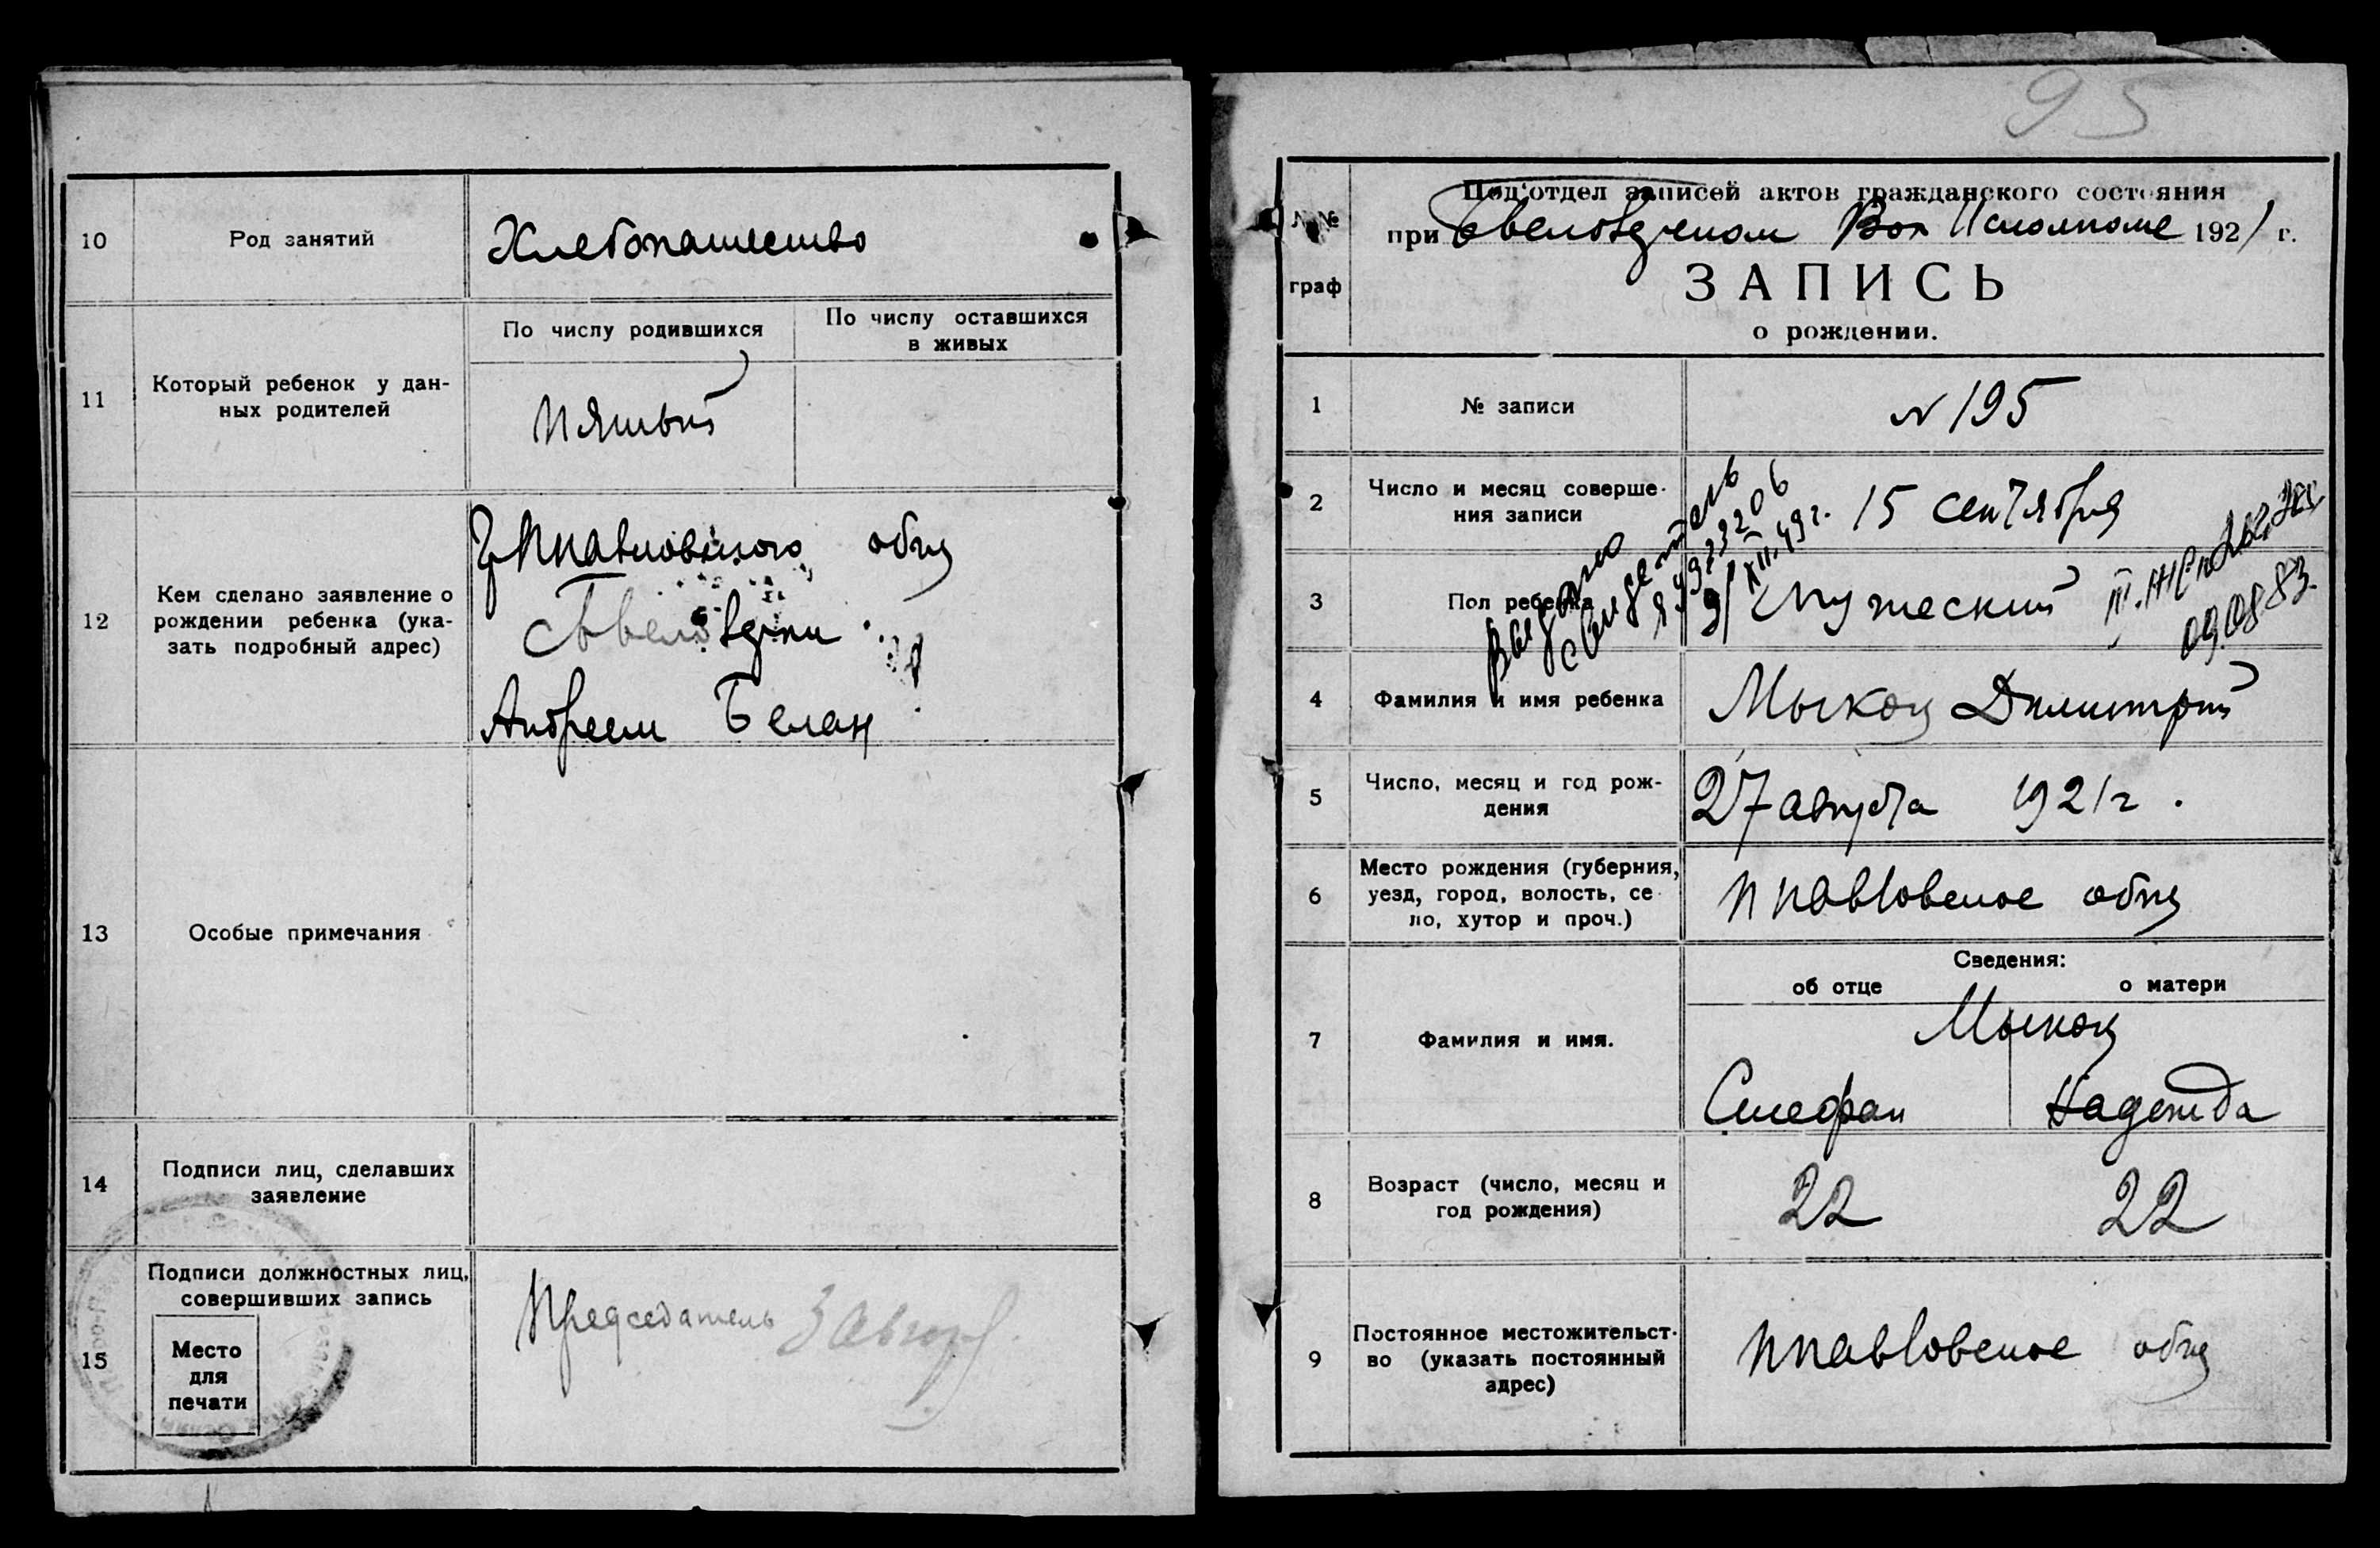 10
Род занятий
Хлебопашество
11
Который ребенок у дан-
ных родителей
По числу родившихся
По числу оставшихся
в живых
пятый
12
Кем сделано заявление о
рождении ребенка (ука-
зать подробный адрес)
общ
Андреем Белан
13
Особые примечания
14
Подписи лиц, сделавших
заявление
15
Подписи должностных лиц,
совершивших запись
Место
для
печати
Председатель
95
№№
граф
Под'отдел записей актов гражданского состояния
при Вол Исполкоме 1921 г.
ЗАПИСЬ
о рождении.
1
№ записи
N 195
2
Число и месяц соверше-
ния записи
15 сентября
Выдано
свидетель
XII.49г.
3
Пол ребенка
Мужеский
09.08.83.
4
Фамилия и имя ребенка
Мыкоц Димитрий
5
Число, месяц и год рож-
дения
27 августа 1921 г.
6
Место рождения (губерния,
уезд, город, волость, се-
ло, хутор и проч.)
Ппавловское общ
Сведения:
об отце
о матери
7
Фамилия и имя.
Мыкоц
Стефан
Надежда
8
Возраст (число, месяц и
год рождения)
22
22
9
Постоянное местожительст-
во (указать постоянный
адрес)
Ппавловское общ